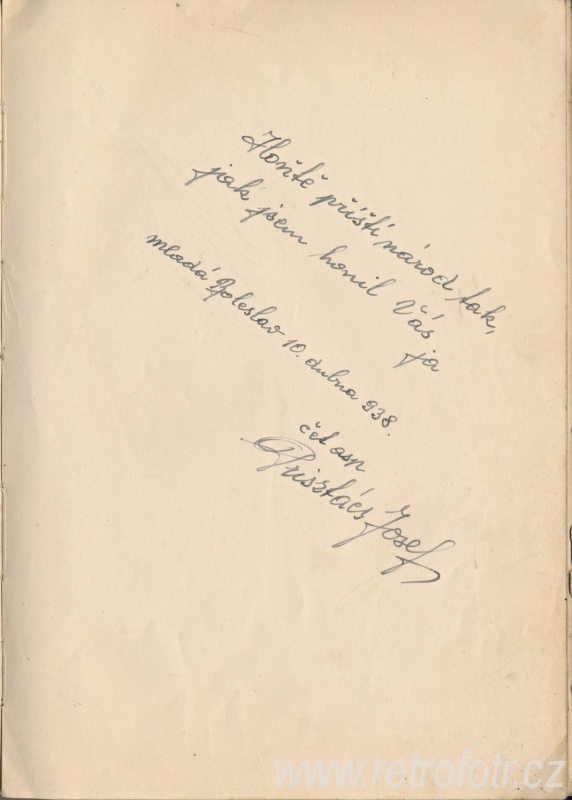 Hontě příští národ tak,
jak jsem honil Vás ja
Mladá Boleslav 10. dubna 938.
čet asp
Prisztács Josef
www.retrofotr.cz